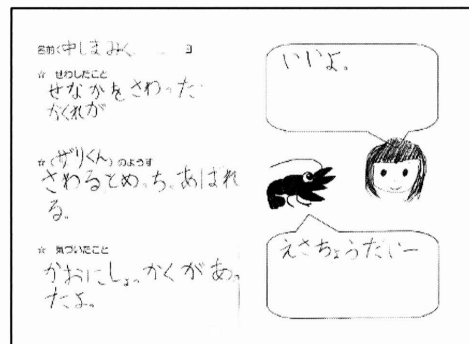 名前(中しまみく
☆ せわしたこと
せなかをさわった
かくれが
☆(ザリくん)のようす
さわるとめっち。あばれ
る。
☆ 気づいたこと
かおにしょっかくがあっ
たよ。
いいよ。
えさちょうだいー